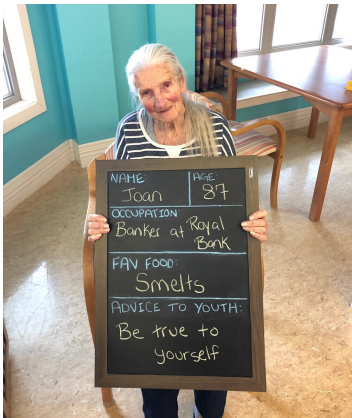 NAME: AGE:
Joan 87
OCCUPATION:
Banker at Royal
Bank
FAV FOOD:
Smelts
ADVICE TO YOUTH:
Be true to
yourself